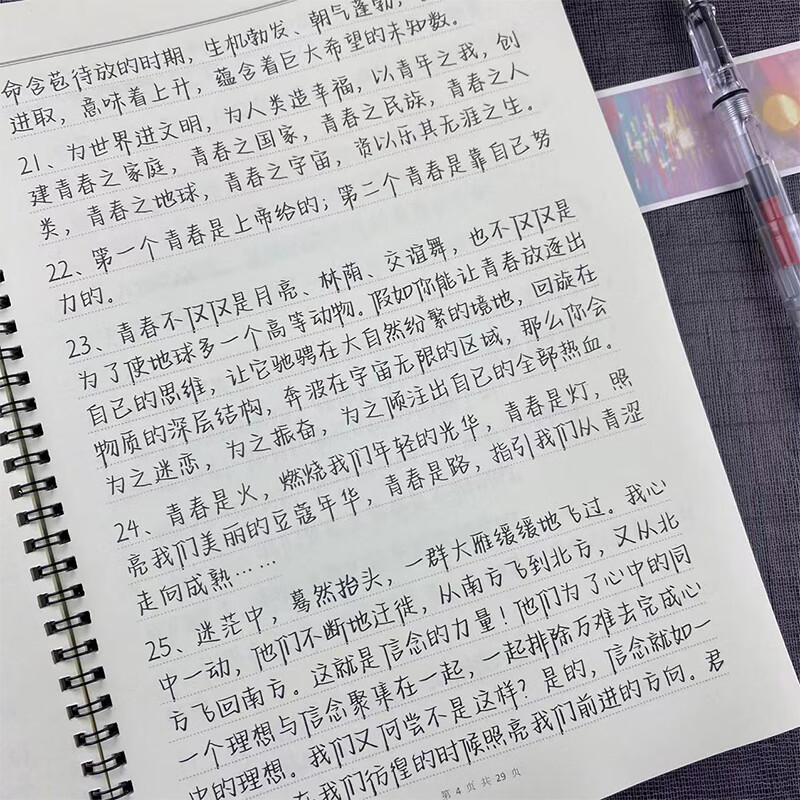 命含苞待放的时期，生机勃发、朝气蓬勃，
进取，意味着上升，蕴含着巨大希望的未知数。
21、为世界进文明，为人类造幸福，以青年之我，创
建青春之家庭，青春之国家，青春之民族，青春之人
类，青春之地球，青春之宇宙，资以乐其无涯之生。
22、第一个青春是上帝给的；第二个青春是靠自己努
力的。
23、青春不仅仅是月亮、林荫、交谊舞，也不仅仅是
为了使地球多一个高等动物。假如你能让青春放逐出
自己的思维，让它驰骋在大自然纷繁的境地，回旋在
物质的深层结构，奔波在宇宙无限的区域，那么你会
为之迷恋，为之振奋，为之倾注出自己的全部热血。
24、青春是火，燃烧我们年轻的光华，青春是灯，照
亮我们美丽的豆蔻年华，青春是路，指引我们从青涩
走向成熟……
25、迷茫中，蓦然抬头，一群大雁缓缓地飞过。我心
中一动，他们不断地迁徙，从南方飞到北方，又从北
方飞回南方。这就是信念的力量！他们为了心中的同
一个理想与信念聚集在一起，一起排除万难去完成心
中的理想。我们又何尝不是这样？是的，信念就如一
在我们彷徨的时候照亮我们前进的方向。君
第 4 页 共 29 页